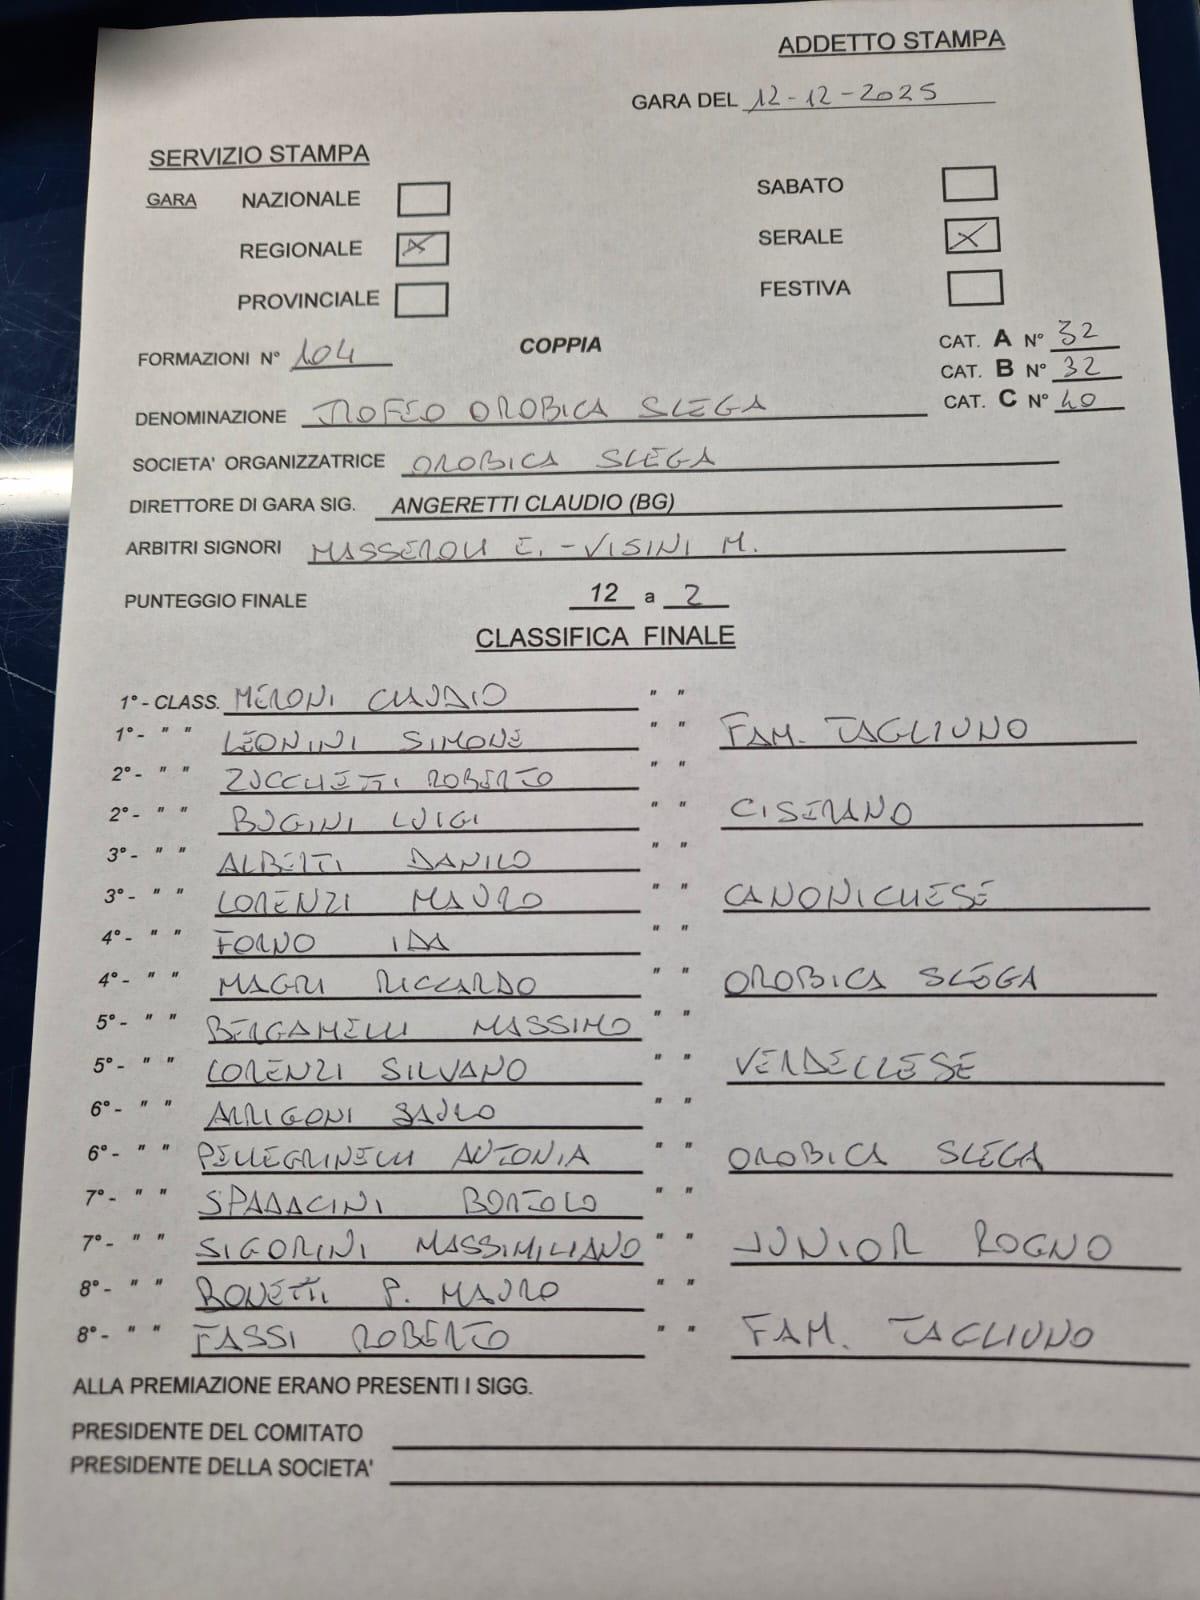 ADDETTO STAMPA
GARA DEL 12-12-2025
SERVIZIO STAMPA
GARA NAZIONALE SABATO
REGIONALE X SERALE X
PROVINCIALE FESTIVA
FORMAZIONI N° 104 COPPIA CAT. A N° 32
CAT. B N° 32
DENOMINAZIONE TROFEO OROBICA SLEGA CAT. C N° 40
SOCIETA' ORGANIZZATRICE OROBICA SLEGA
DIRETTORE DI GARA SIG. ANGERETTI CLAUDIO (BG)
ARBITRI SIGNORI MASSEROLI E. - VISINI M.
PUNTEGGIO FINALE 12 a 2
CLASSIFICA FINALE
1° - CLASS. MERONI CLAUDIO " "
1° - " " LEONINI SIMONE " " FAM. TAGLIUNO
2° - " " ZUCCHETTI ROBERTO " "
2° - " " BUGINI LUIGI " " CISERANO
3° - " " ALBERTI DANILO " "
3° - " " LORENZI MAURO " " CANONICHESE
4° - " " FORNO IDA " "
4° - " " MAGRI RICCARDO " " OROBICA SLEGA
5° - " " BERGAMELLI MASSIMO " "
5° - " " LORENZI SILVANO " " VERDELLESE
6° - " " ARRIGONI " "
6° - " " PELLEGRINELLI ANTONIA " " OROBICA SLEGA
7° - " " SPADACINI BORTOLO " "
7° - " " SIGORINI MASSIMILIANO " " JUNIOR ROGNO
8° - " " BONETTI P. MAURO " "
8° - " " FASSI ROBERTO " " FAM. TAGLIUNO
ALLA PREMIAZIONE ERANO PRESENTI I SIGG.
PRESIDENTE DEL COMITATO
PRESIDENTE DELLA SOCIETA'